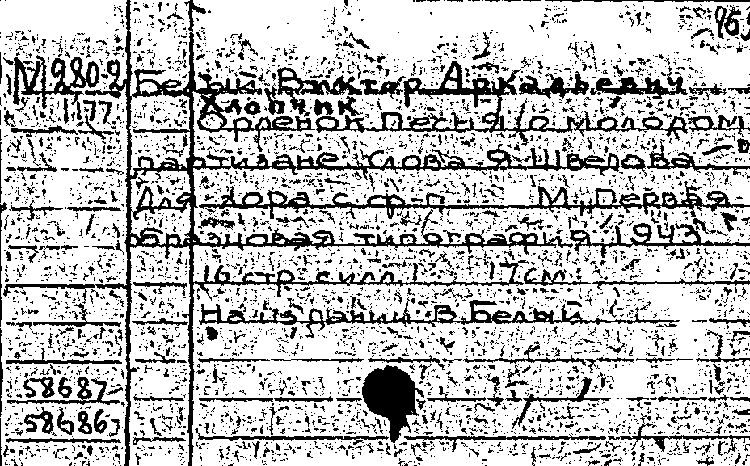 95
М 980-2 Белый Виктор Аркадьевич
1177 Хлопчик
Орленок Песня о молодом
партизане Слова Я Шведова
Для хора с ф-п М., Первая
образцовая типография, 1943
16 стр с илл. 17 см
На издании: В. Белый
58687
58686